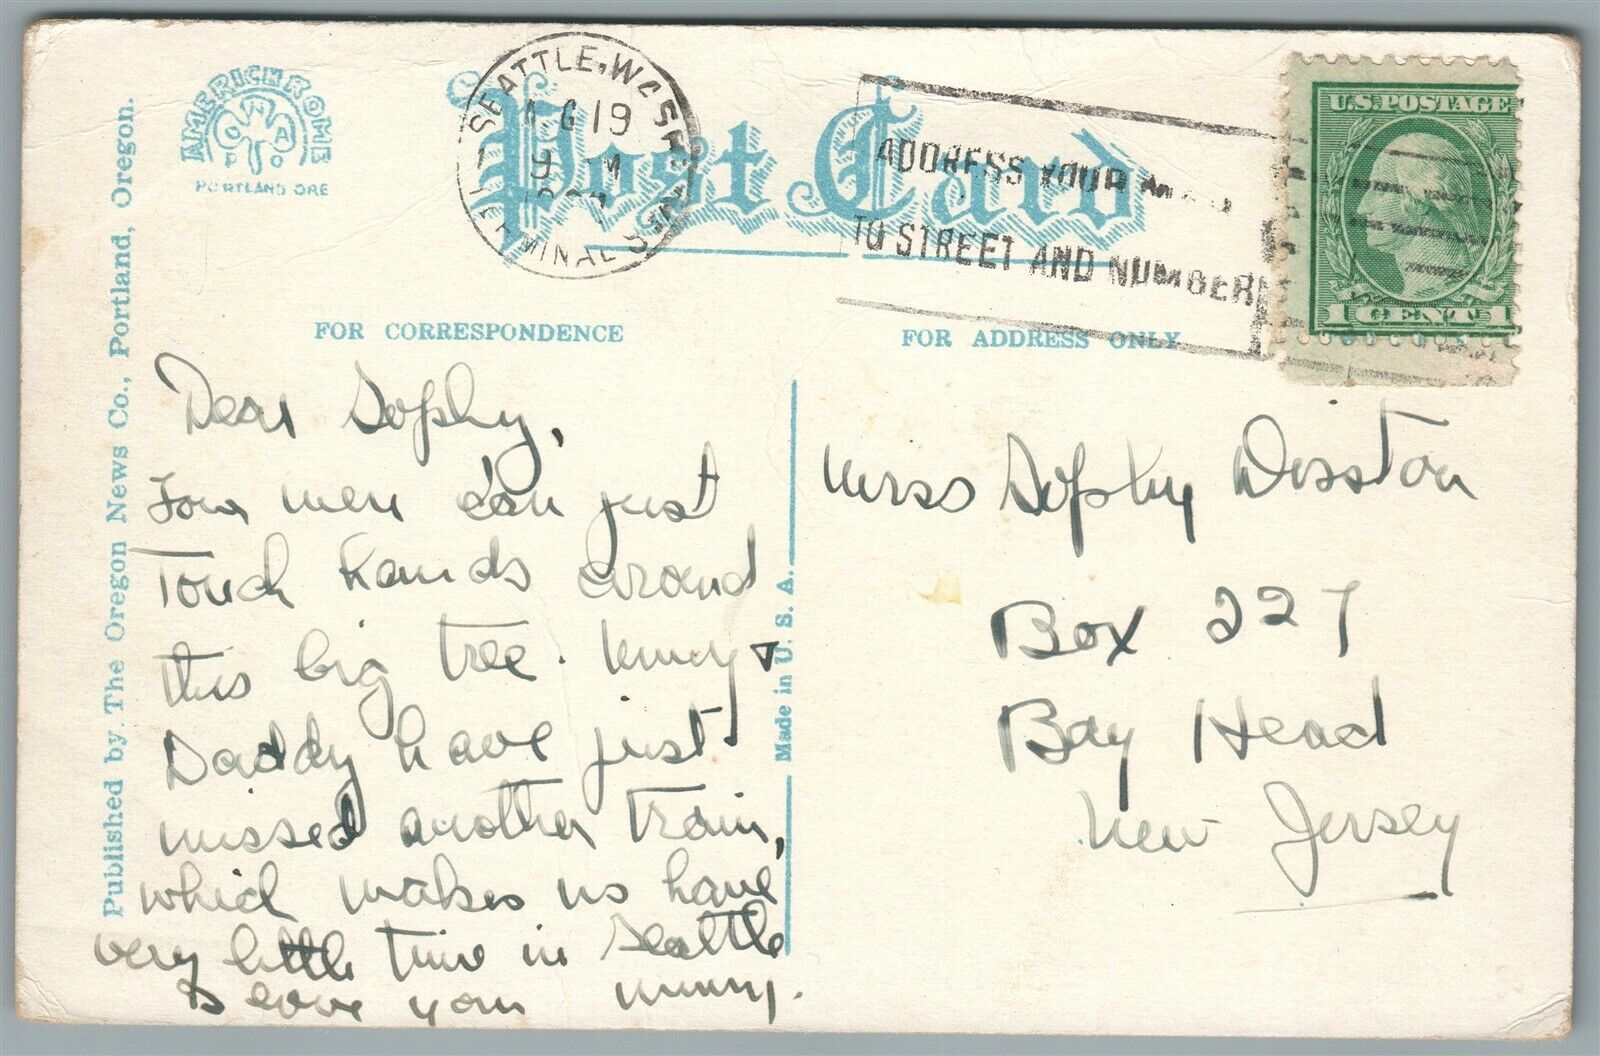 AMERICHROME
PORTLAND ORE
Post Card
SEATTLE, WASH.
AUG 19
9 M
TERMINAL
ADDRESS YOUR
TO STREET AND NUMBER
U.S. POSTAGE
1 CENT 1
FOR CORRESPONDENCE
FOR ADDRESS ONLY
Published by The Oregon News Co., Portland, Oregon.
Made in U. S. A.
Dear Sophy,
Four men can just
touch hands around
this big tree.
Daddy have just
missed another train,
which makes us have
very little time in Seattle
love you
Miss Sophy Disston
Box 227
Bay Head
New Jersey